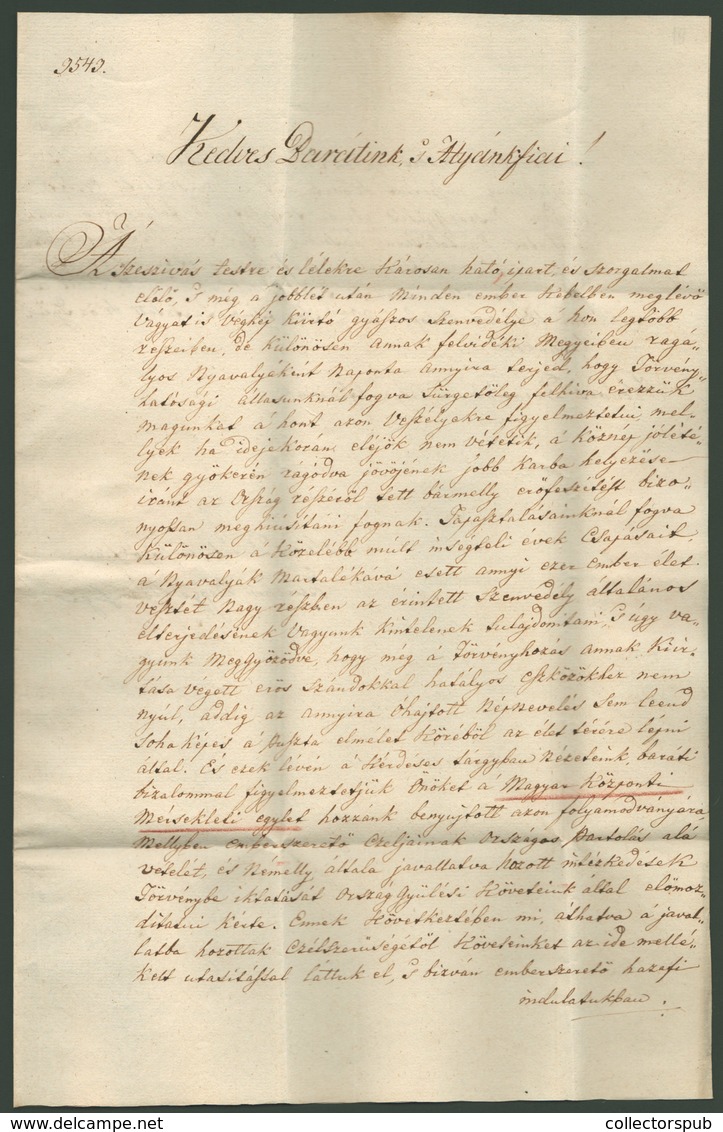 9549.
Kedves Barátink, 's Atyánkfiai!
A' szeszivás testre és lélekre károsan ható, ipart, és szorgalmat
előlő, 's még a' jobblét után minden ember kebelben meglévő
vágyat is végkép kiirtó gyászos szenvedélye a' hon legtöbb
részeiben, de különösen annak felvidéki Megyéiben ragá„
lyos nyavalyaként naponta annyira terjed, hogy Törvény„
hatósági állásunknál fogva sürgetőleg felhiva érezzük
magunkat a' hont azon veszélyekre figyelmeztetni, mel„
lyek ha idejekorán eléjök nem vétetik, a' köznép jólété„
nek gyökerén rágódva jövőjének jobb karba helyezése
iránt az Ország részéről tett bármelly erőfeszítést bizo„
nyossan meghiúsítani fognak. Tapasztalásainknál fogva
különösen a' közelébb múlt inségteli évek csapásait,
a' nyavalyák martalékává esett annyi ezer ember élet„
vesztét nagy részben az érintett szenvedély általános
elterjedésének vagyunk kintelenek tulajdonitani, 's úgy va„
gyunk meggyőződve, hogy még a' Törvényhozás annak kiir„
tása végett erős szándokkal hatalyos eszközökhez nem
nyúl, addig az annyira óhajtott népnevelés sem leend
soha képes, a' puszta elmélet köréből az élet térére lépni
által. És ezek lévén a' kérdéses tárgyban nézeteink, baráti
bizalommal figyelmeztetjük Önöket a' Magyar Központi
Mérsékleti egylet hozzánk benyujtott azon folyamodványára,
mellyben emberszerető czéljainak országos pártolás alá
vételét, és némelly általa javallatva hozott intézkedések
Törvénybe iktatását Országgyűlési Követeink által előmoz„
dítatni kérte. Ennek következtében mi, áthatva a' javal„
latba hozottak czélszerűségétől Követeinket az ide mellé„
kelt utasítással láttuk el, 's bizván emberszerető hazafi
indulatukban.
collectorspub